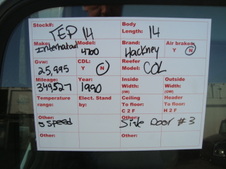 Stock#: TEP 14 Body Length: 14
Make: International Model: 4700 Brand: Hackney Air brakes: Y N
Gvw: 25,995 CDL: Y N Reefer Model: COL
Mileage: 349527 Year: 1990 Inside Width: Outside Width:
Temperature range: Elect. Stand by: Ceiling To floor: Header To floor:
Other: 5 speed Other: Side Door #3
Other: Other: